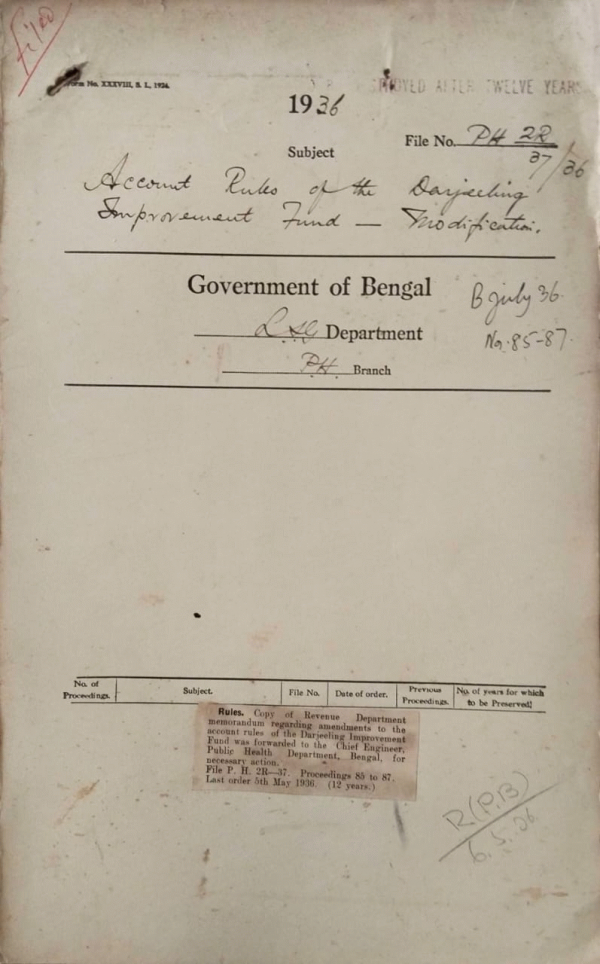 Filed
Form No. XXXVIII, S. L., 1924.
REMOVED AFTER TWELVE YEARS
1936
File No. PH 2R
37/36
Subject
Account Rules of the Darjeeling
Improvement Fund — Modification.
Government of Bengal
B July 36.
L.S.G. Department
No. 85-87.
P.H. Branch
No. of Proceedings. Subject. File No. Date of order. Previous Proceedings. No. of years for which to be Preserved!
Rules. Copy of Revenue Department
memorandum regarding amendments to the
account rules of the Darjeeling Improvement
Fund was forwarded to the Chief Engineer,
Public Health Department, Bengal, for
necessary action.
File P. H. 2R—37. Proceedings 85 to 87.
Last order 5th May 1936. (12 years.)
R(P.B)
6.5.36